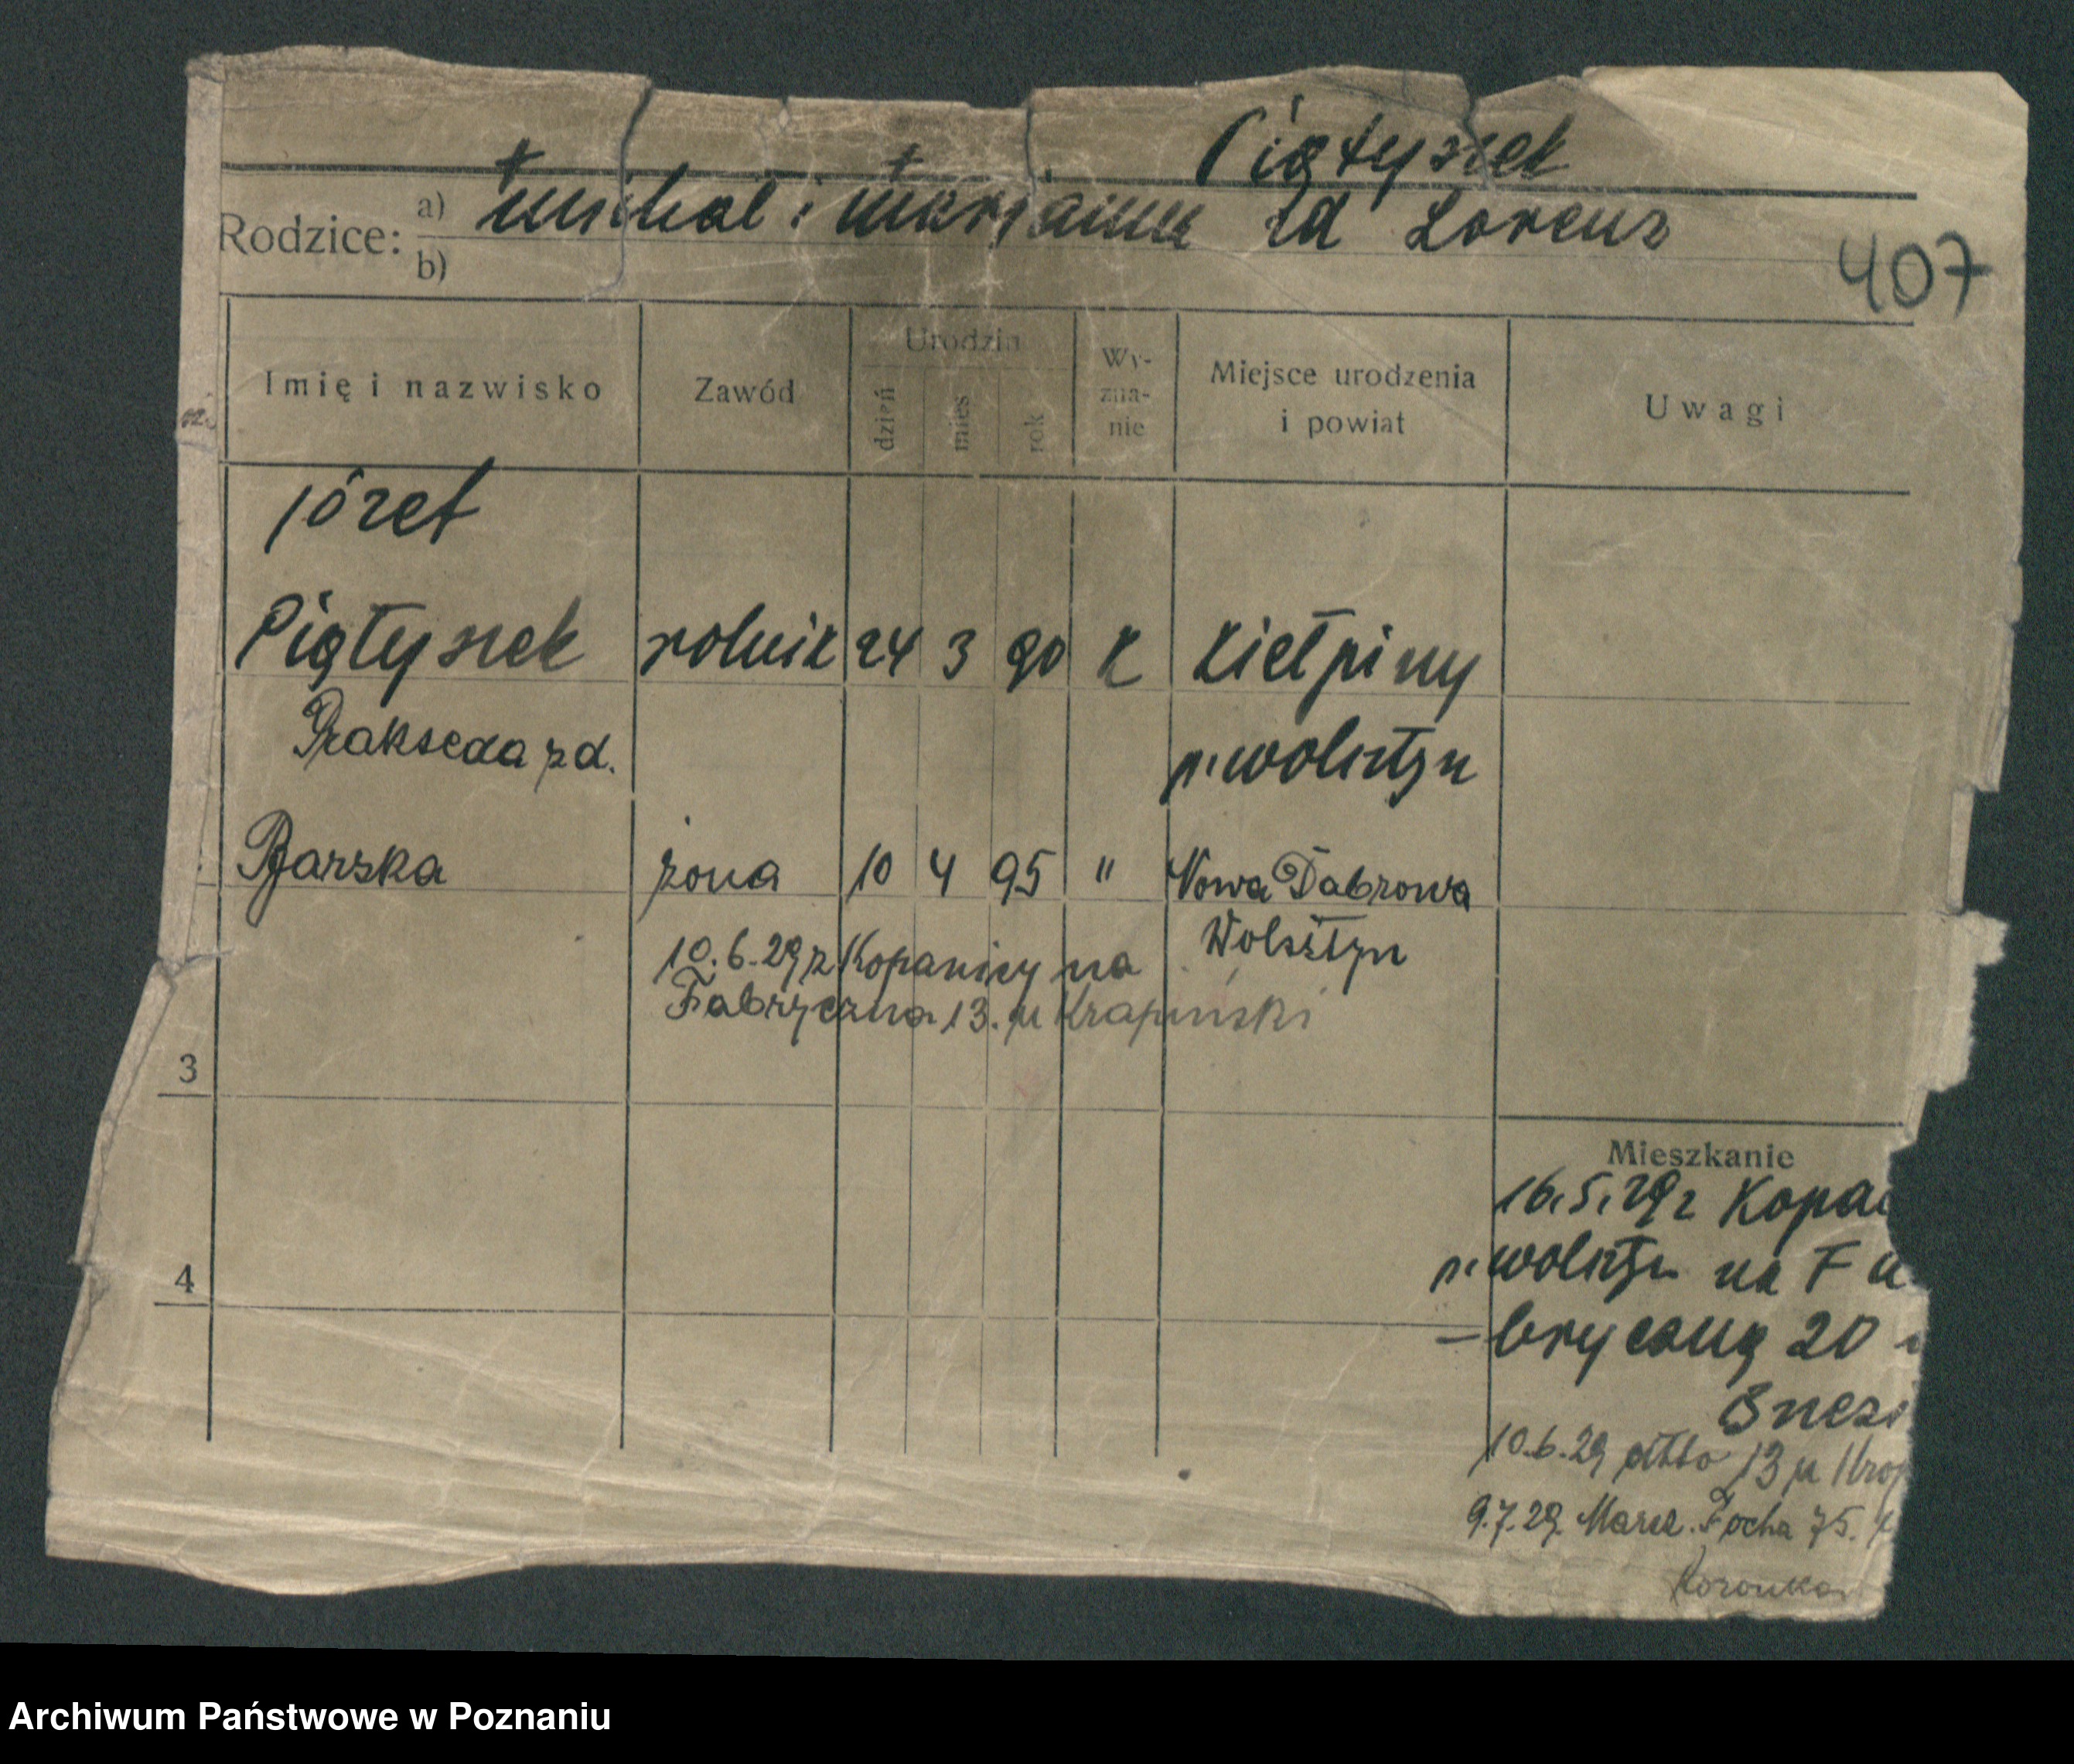 Piątyszek
a) + Michał i + Marjanna zd Lorenz
Rodzice:
b)
407
Imię i nazwisko Zawód Urodzin dzień mies rok Wy-zna-nie Miejsce urodzenia i powiat Uwagi
Józef
Piątyszek rolnik 24 3 90 K Kiełpiny
Prakseda zd. p. Wolsztyn
Bjarska żona 10 4 95 " Nowa Dąbrowa
Wolsztyn
10.6.29 z Kopanicy na
Fabryczna 13. u Krapiński
3
Mieszkanie
16.5.29 z Kopa
p. Wolsztyn na Fa
4
-bryczną 20
10.6.29 ditto 13 u
9.7.29. Marsz. Focha 75.
Archiwum Państwowe w Poznaniu